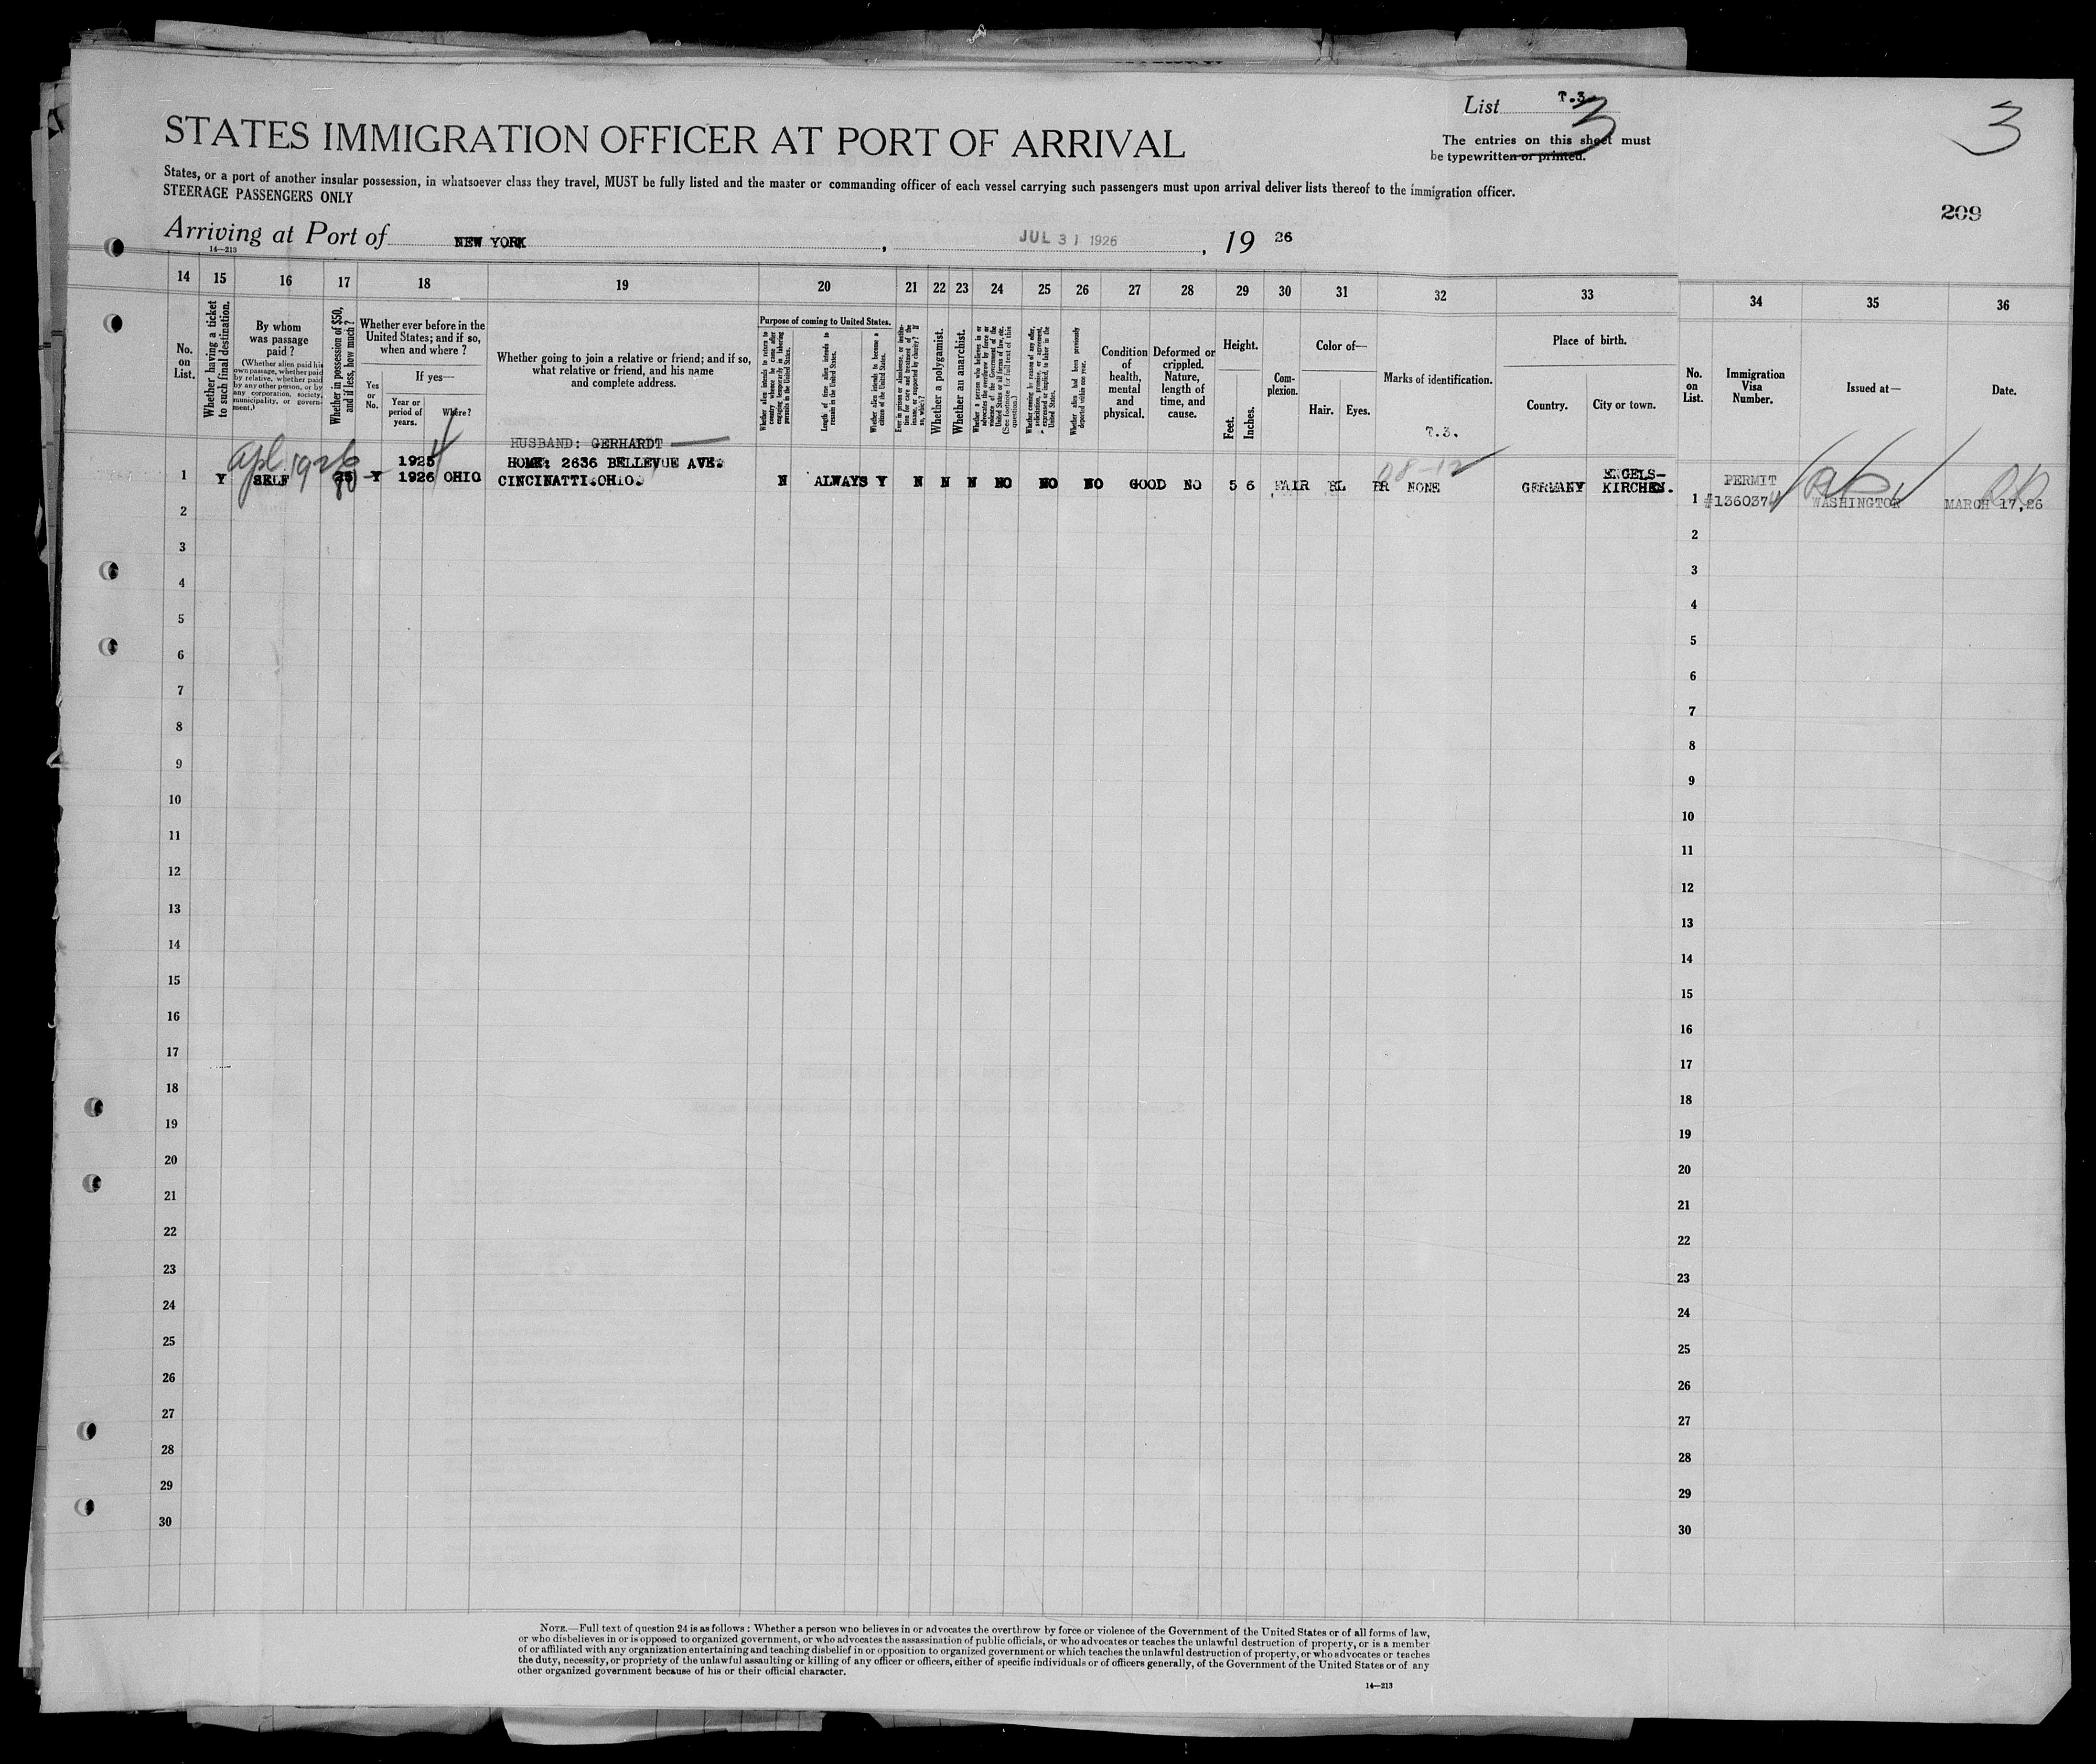 List T.3.
3
3
STATES IMMIGRATION OFFICER AT PORT OF ARRIVAL
The entries on this sheet must
be typewritten or printed.
States, or a port of another insular possession, in whatsoever class they travel, MUST be fully listed and the master or commanding officer of each vessel carrying such passengers must upon arrival deliver lists thereof to the immigration officer.
STEERAGE PASSENGERS ONLY
209
Arriving at Port of NEW YORK, JUL 31 1926, 19 26
14—213
14 15 16 17 18 19 20 21 22 23 24 25 26 27 28 29 30 31 32 33 34 35 36
No. on List.
Whether having a ticket to such final destination.
By whom was passage paid?
(Whether alien paid his own passage, whether paid by relative, whether paid by any other person, or by any corporation, society, municipality, or government.)
Whether in possession of $50, and if less, how much?
Whether ever before in the United States; and if so, when and where?
Yes or No.
If yes—
Year or period of years.
Where?
Whether going to join a relative or friend; and if so, what relative or friend, and his name and complete address.
Purpose of coming to United States.
Whether alien intends to return to country whence he came after engaging temporarily in laboring pursuits in the United States.
Length of time alien intends to remain in the United States.
Whether alien intends to become a citizen of the United States.
Ever in prison or almshouse, or institution for care and treatment of the insane, or supported by charity? If so, which?
Whether a polygamist.
Whether an anarchist.
Whether a person who believes in or advocates the overthrow by force or violence of the Government of the United States or all forms of law, etc. (See footnote for full text of this question.)
Whether coming by reason of any offer, solicitation, promise, or agreement, expressed or implied, to labor in the United States.
Whether alien had been previously deported within one year.
Condition of health, mental and physical.
Deformed or crippled. Nature, length of time, and cause.
Height.
Feet. Inches.
Complexion.
Color of—
Hair. Eyes.
Marks of identification.
T.3.
Place of birth.
Country. City or town.
No. on List.
Immigration Visa Number.
Issued at—
Date.
HUSBAND: GERHARDT
apl 1926 1925 4 HOME: 2636 BELLEVUE AVE. 08-12 ENGELS- PERMIT
1 Y SELF 80 Y 1926 OHIO CINCINATTI.OHIO. N ALWAYS Y N N N NO NO NO GOOD NO 5 6 FAIR BL BR NONE GERMANY KIRCHEN. 1 #136037 WASHINGTON MARCH 17,26
2 2
3 3
4 4
5 5
6 6
7 7
8 8
9 9
10 10
11 11
12 12
13 13
14 14
15 15
16 16
17 17
18 18
19 19
20 20
21 21
22 22
23 23
24 24
25 25
26 26
27 27
28 28
29 29
30 30
NOTE.—Full text of question 24 is as follows: Whether a person who believes in or advocates the overthrow by force or violence of the Government of the United States or of all forms of law,
or who disbelieves in or is opposed to organized government, or who advocates the assassination of public officials, or who advocates or teaches the unlawful destruction of property, or is a member
of or affiliated with any organization entertaining and teaching disbelief in or opposition to organized government or which teaches the unlawful destruction of property, or who advocates or teaches
the duty, necessity, or propriety of the unlawful assaulting or killing of any officer or officers, either of specific individuals or of officers generally, of the Government of the United States or of any
other organized government because of his or their official character.
14—213